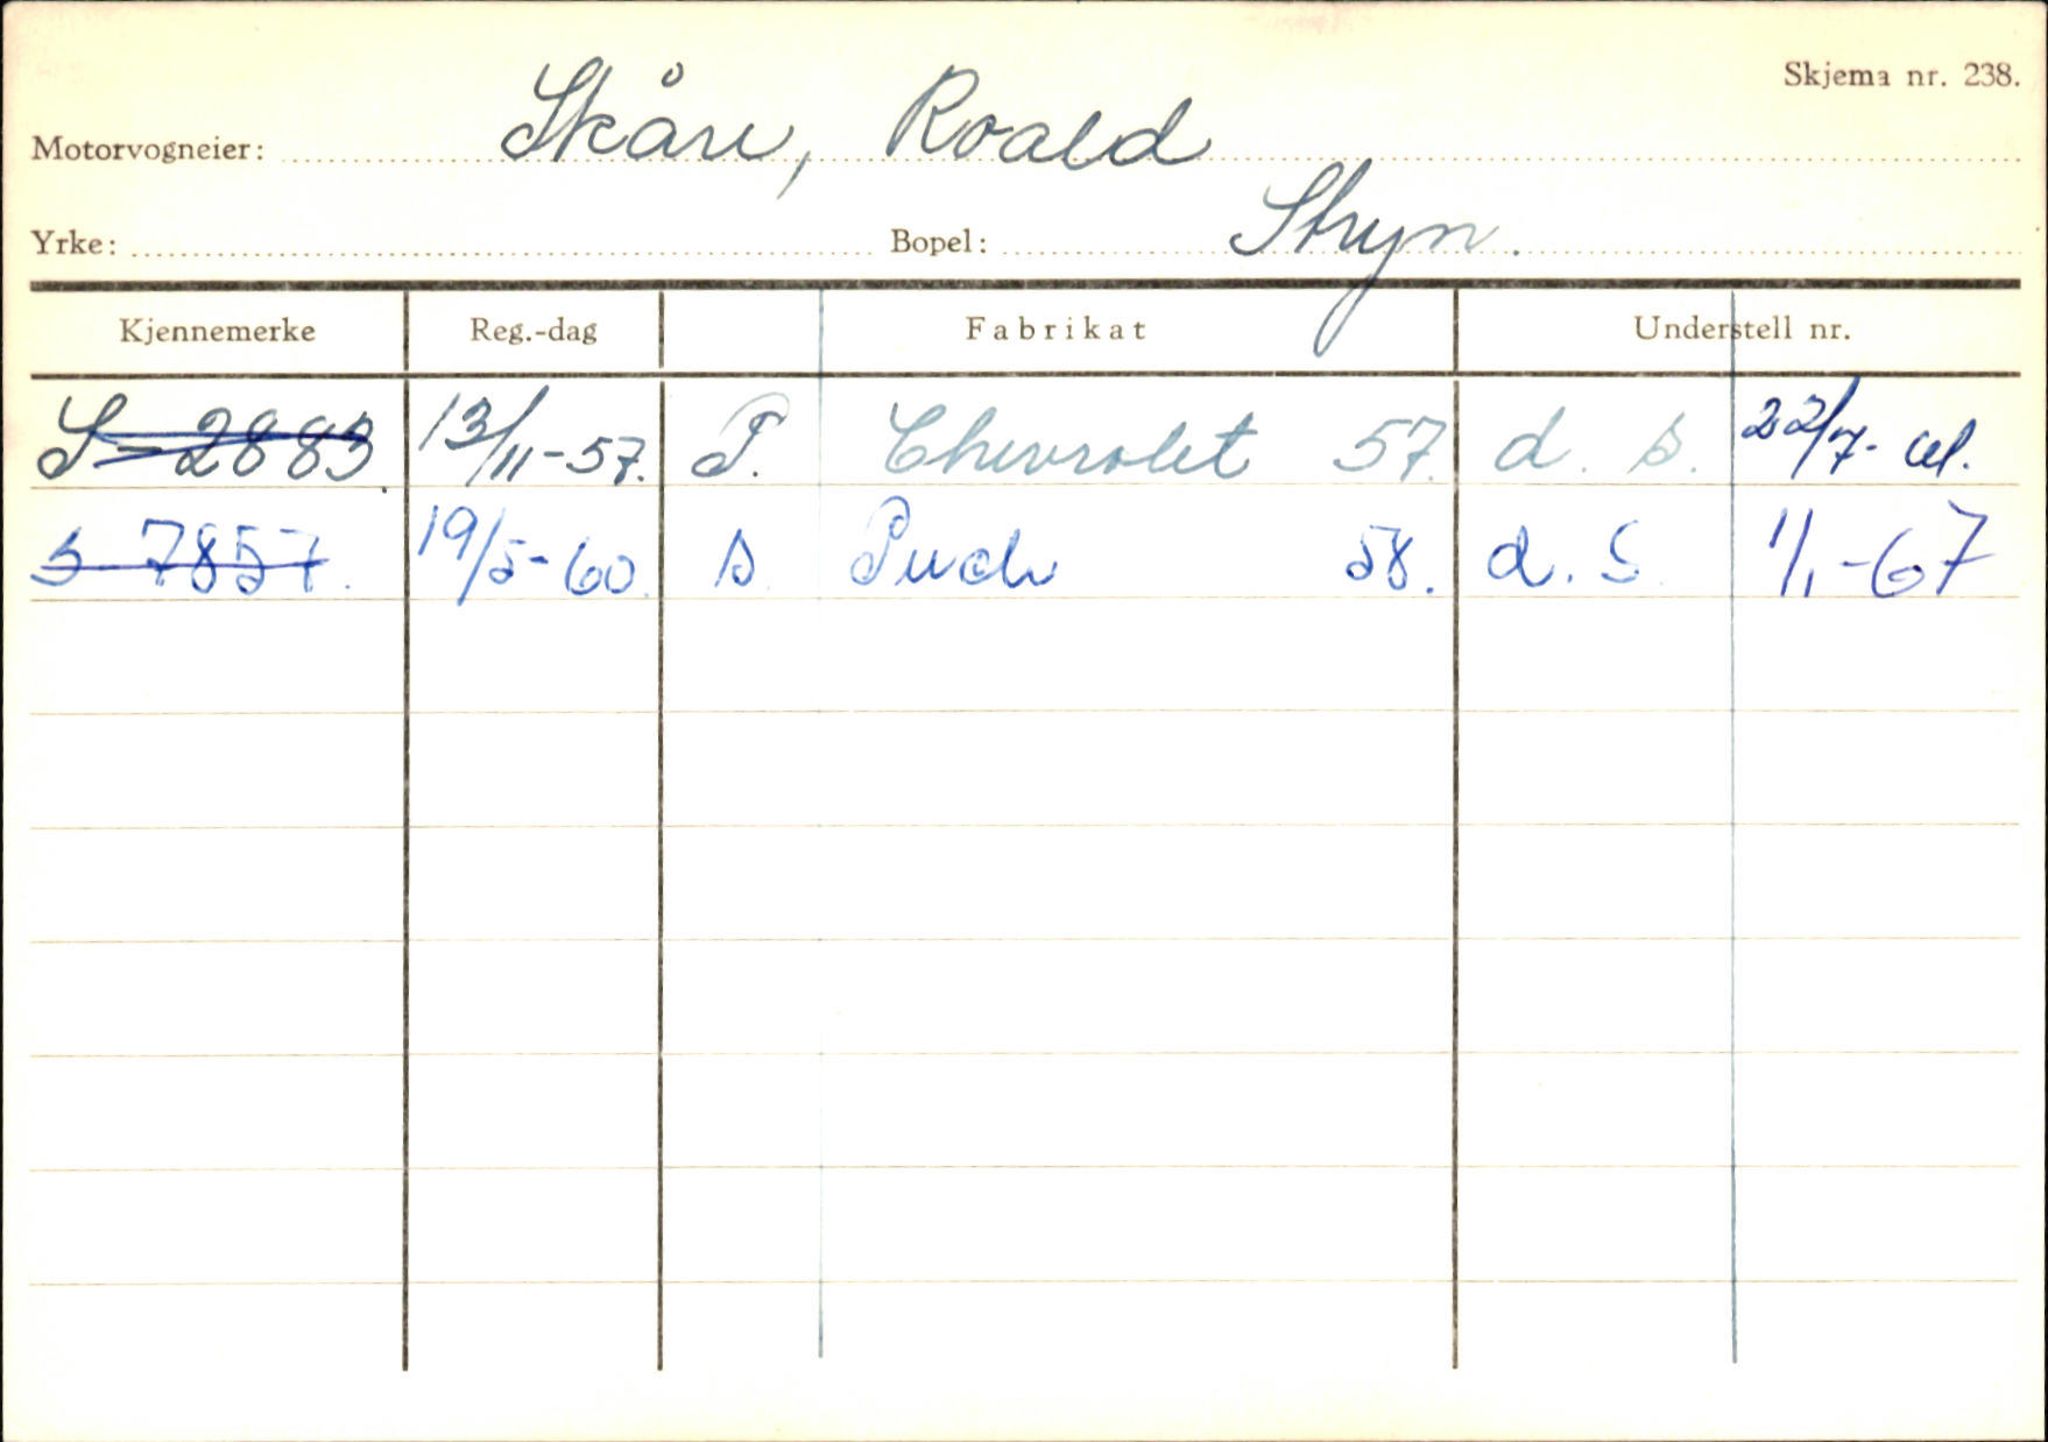 Skjema nr. 238.
Motorvogneier: Skåre, Roald
Yrke: Bopel: Stryn.
Kjennemerke Reg.-dag Fabrikat Understell nr.
S-2883. 13/11-57. P. Chevrolet 57. d. s. 22/7-
S 7857. 19/5-60. s. Puch 58. d. S. 1/1-67